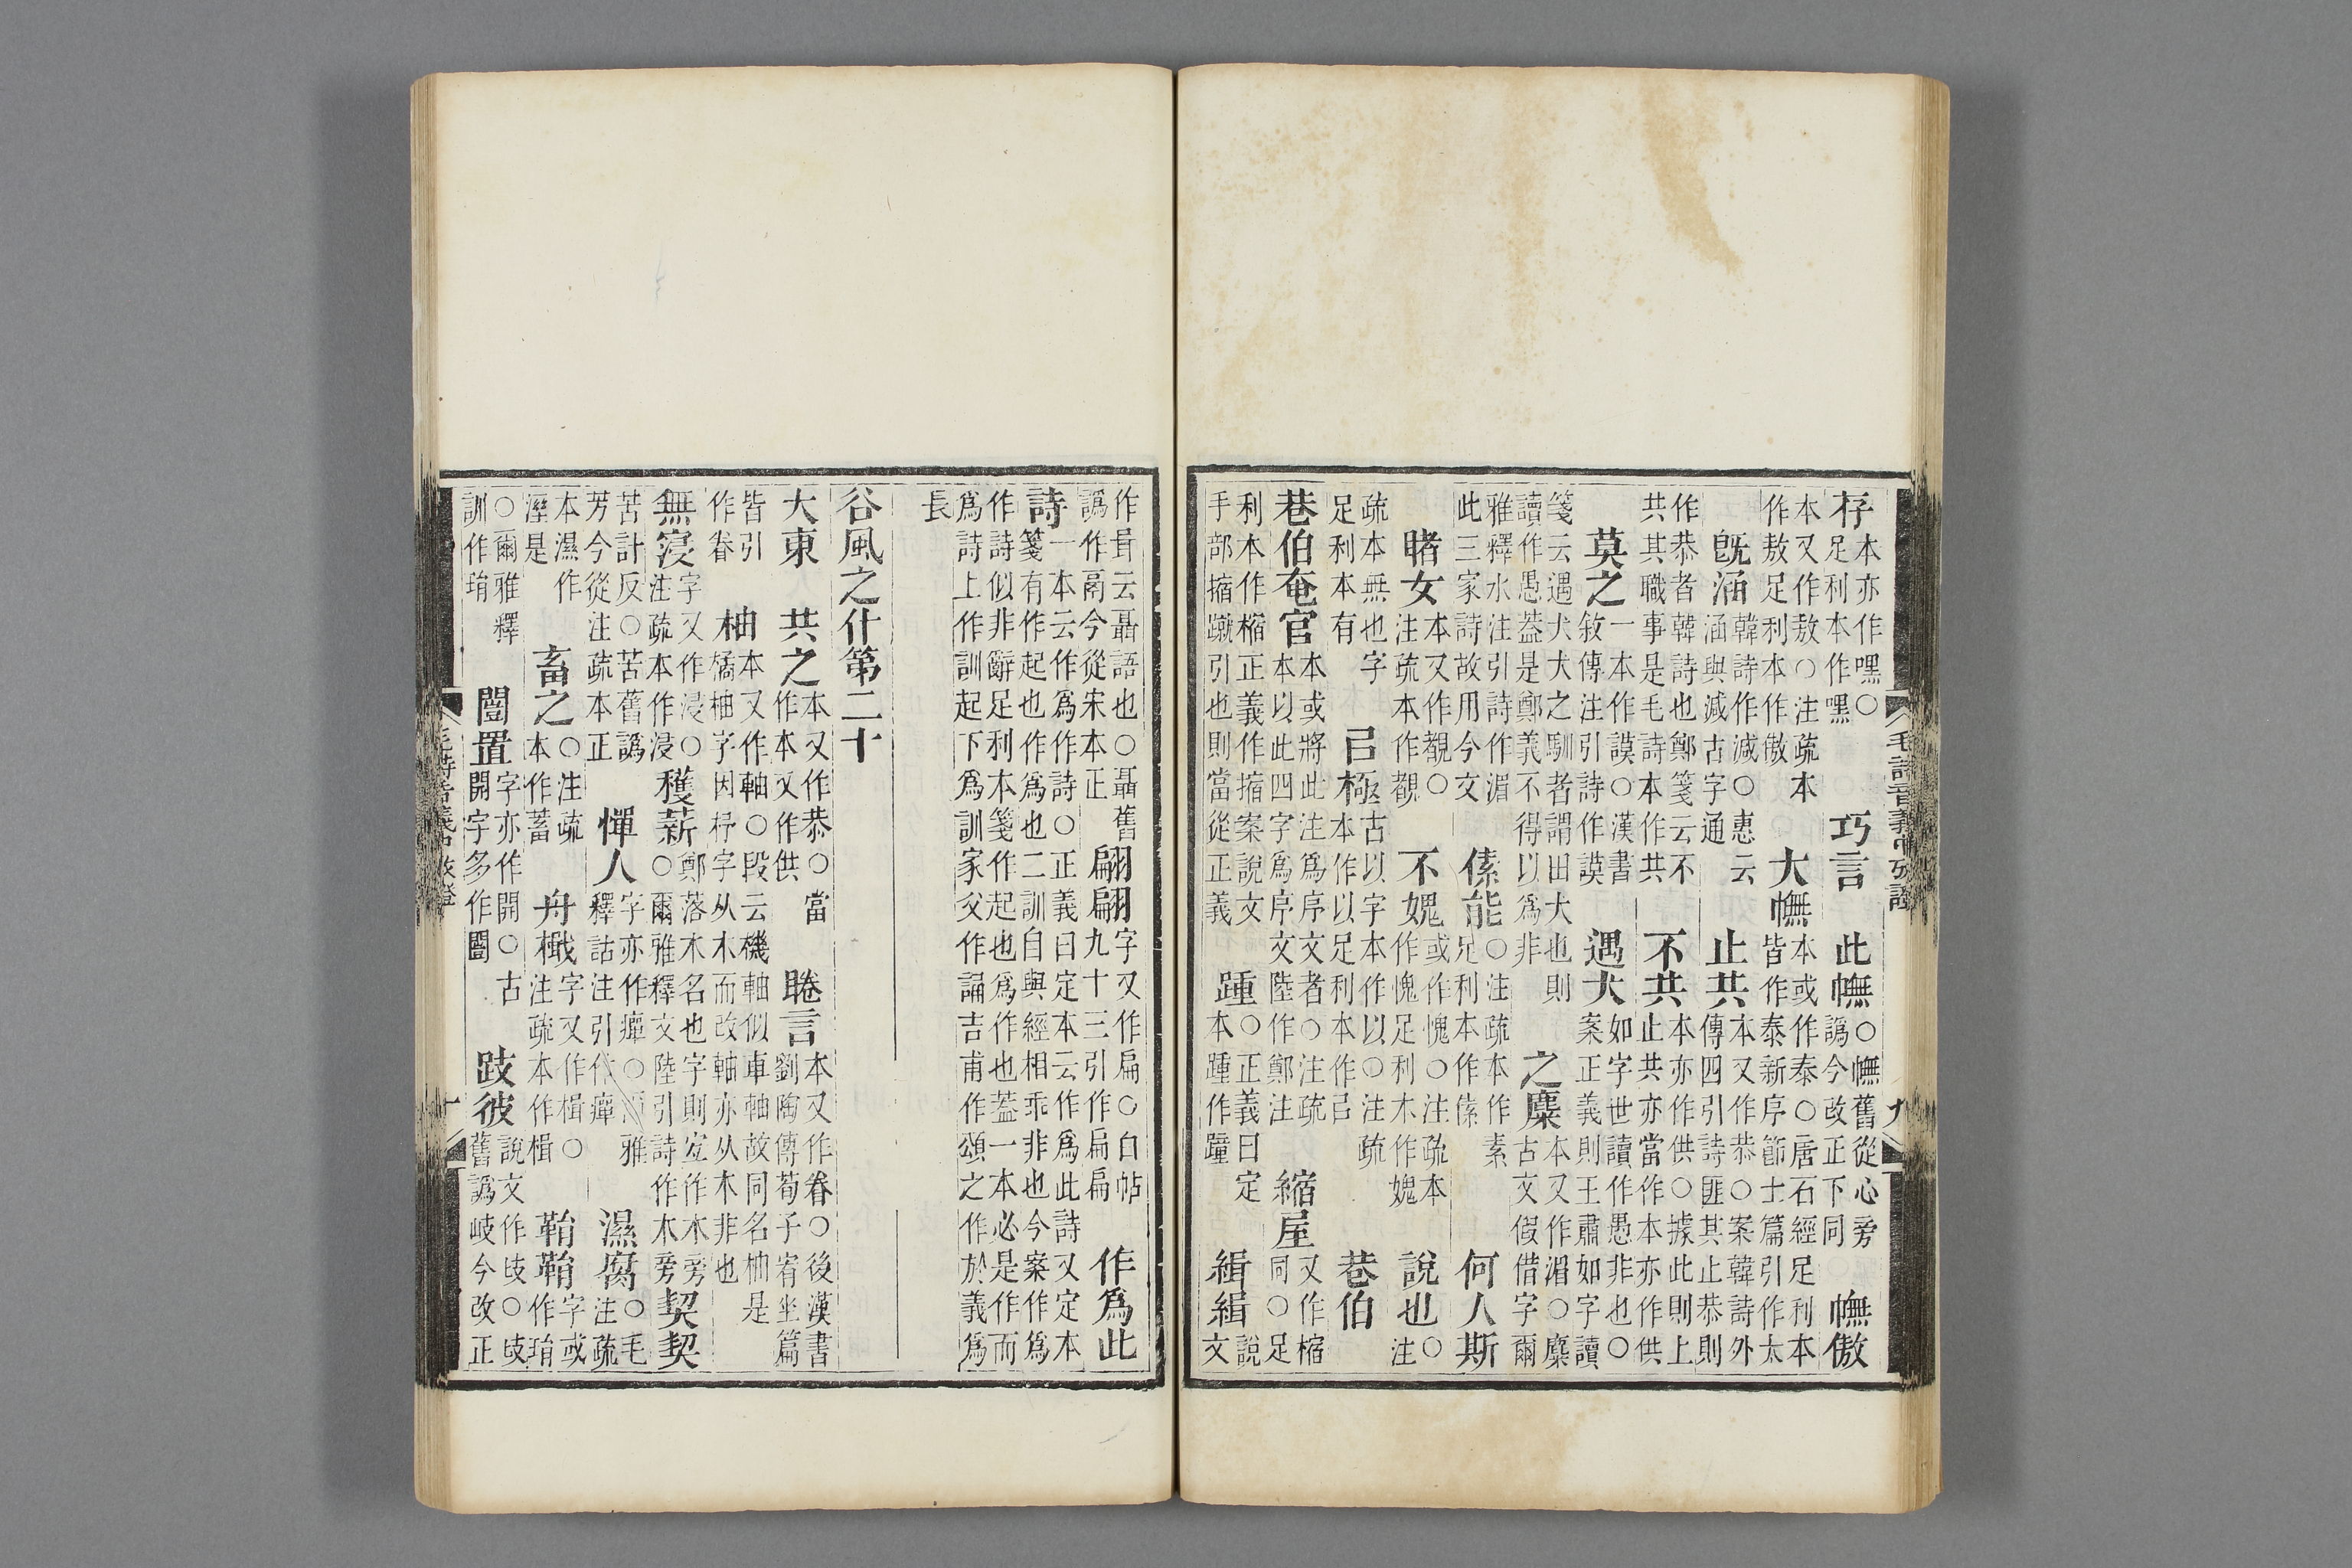 存本亦作嘿○足利本作嘿 巧言 此幠○幠舊從心旁譌今改正下同 幠傲
本又作敖○注疏本作敖足利本作傲 大幠本或作泰○唐石經足利本皆作泰新序節士篇引作太
旣涵韓詩作減○惠云涵與減古字通 止共本又作恭○案韓詩外傳四引詩匪其止恭則
作恭者韓詩也鄭箋云不共其職事是毛詩本作共 不共本亦作供○據此則上止共亦當作本亦作供
莫之一本作謨○漢書敘傳注引詩作謨 遇犬如字世讀作愚非也○案正義則王肅如字讀
箋云遇犬犬之馴者謂田犬也則讀作愚葢是鄭義不得以爲非 之麋本又作湄○麋古文假借字爾
雅釋水注引詩作湄此三家詩故用今文 傃能○注疏本作素足利本作傃 何人斯
睹女本又作覩○注疏本作覩 不媿或作愧○注疏本作愧足利木作媿 說也○注
疏本無也字足利本有 㠯極古以字本作以○注疏本作以足利本作㠯 巷伯
巷伯奄官本或將此注爲序文者○注疏本以此四字爲序文陸作鄭注 縮屋又作樎同○足
利本作樎正義作搐案說文手部搐蹴引也則當從正義 踵○正義曰定本踵作踵 緝緝說文
毛詩音義中攷證
九
作咠云聶語也○聶舊譌作咼今從宋本正 翩翩字又作扁○白帖九十三引作扁扁 作爲此
詩一本云作爲作詩○正義曰定本云作爲此詩又定本箋有作起也作爲也二訓自與經相乖非也今案作爲
作詩似非辭足利本箋作起也爲作也葢一本必是作而爲詩上作訓起下爲訓家父作誦吉甫作頌之作於義爲
長
谷風之什第二十
大東 共之本又作恭○當作本又作供 睠言本又作眷○後漢書劉陶傳荀子宥坐篇
皆引作眷 柚本又作軸○段云機軸似車軸故同名柚是橘柚字因杼字从木而改軸亦从木非也
無寖字又作浸○注疏本作浸 穫薪○鄭落木名也字則宐作木旁爾雅釋文陸引詩作木旁 契契
苦計反○苦舊譌芳今從注疏本正 憚人字亦作癉○爾雅釋詁注引作癉 濕腐○毛注疏
本濕作溼是 畜之○注疏本作蓄 舟檝字又作楫○注疏本作楫 鞙鞙字或作琄
○爾雅釋訓作琄 闓置字亦作開○古開字多作闓 跂彼說文作○舊譌岐今改正